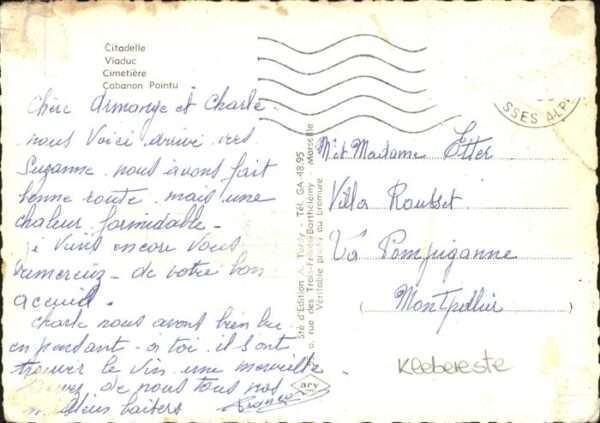 Citadelle
Viaduc
Cimetière
Cabanon Pointu
Chère Armange et Charle
nous Voici arrivé
Suzanne nous avons fait
bonne route mais une
chaleur formidable -
je viens encore vous
remerciez - de votre bon
accueil.
Charle nous avont bien bu
en pendant a toi. il s ont
trouver le vin une merveille
de nous tous nos
baisers
Sté d'Edition A. Tardy - Tél. GA 48.95
rue des Trois-Frères-Barthélemy - Marseille
Véritable photo au bromure
ary
SSES ALP
M et Madame Etter
Villa Rousset
La Pompignane
Montpellier
Klebereste